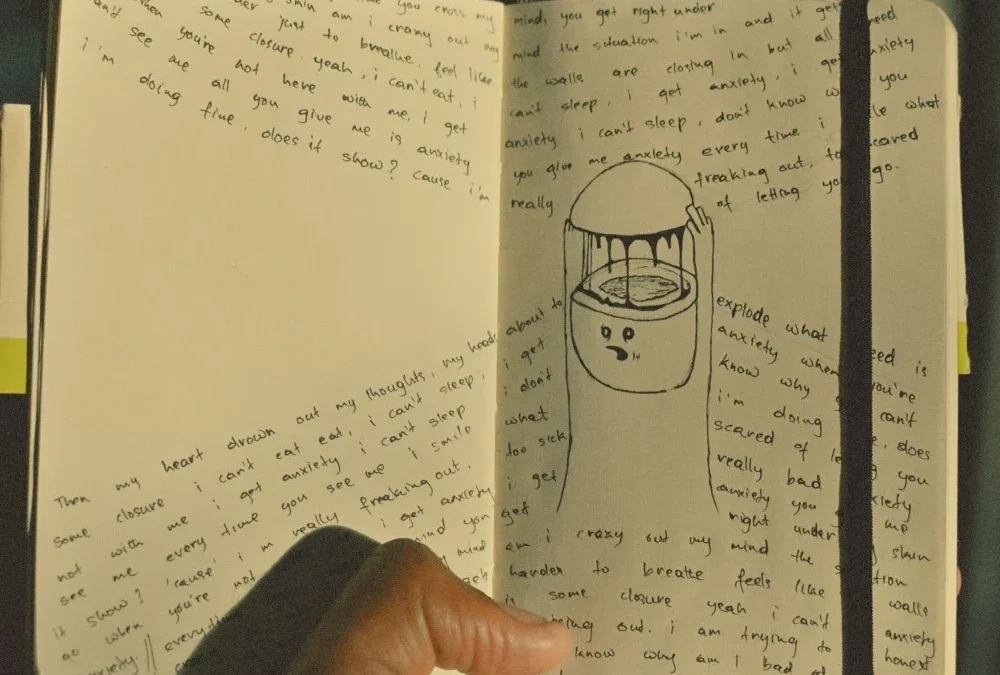 time you cross my
skin am i crazy out my
when just to breathe. feel like
any some closure. yeah, i can't eat, i
see you're not here with me, i get
i'm me all you give me is anxiety
doing fine, does it show? cause i'm
Then my heart drown out my thoughts, my heads
some closure i can't eat, i can't sleep,
not with me i get anxiety i can't sleep
see me every time you see me i smile
it show? 'cause' i'm really freaking out,
go when you're not i get anxiety
anxiety. // mind you
mind
mind, you get right under
mind the situation i'm in and it get need
the walls are closing in but all
can't sleep, i get anxiety, i get anxiety
anxiety i can't sleep, don't know you
you give me anxiety every time i what
really freaking out, scared
of letting you go.
about to explode what
i get anxiety when is
i don't know why you're
what i'm doing can't
too sick scared of does
i get really bad you
get anxiety you
right under me
am i crazy out my mind the skin
harder to breathe feels like
is some closure yeah i can't walls
out. i am trying to anxiety
know why am I bad honest